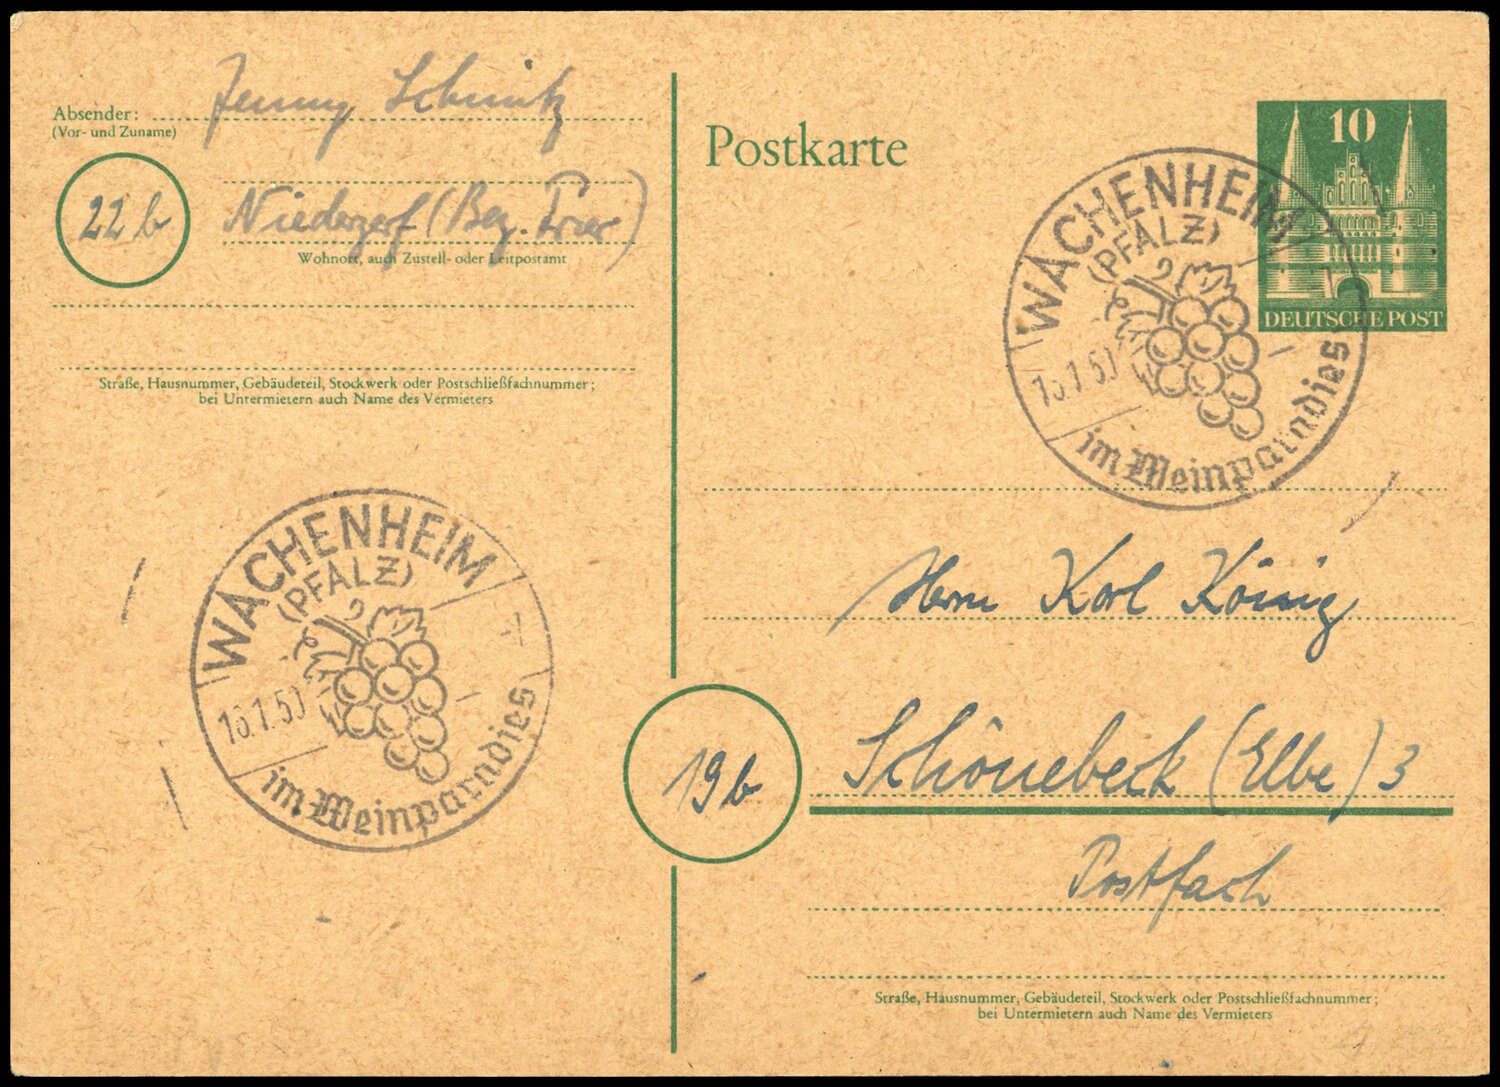 Absender: Jenny Schmitz
(Vor- und Zuname)
22b
Niederzerf (Bez. Trier)
Wohnort, auch Zustell- oder Leitpostamt
Straße, Hausnummer, Gebäudeteil, Stockwerk oder Postschließfachnummer;
bei Untermietern auch Name des Vermieters
WACHENHEIM
(PFALZ)
im Weinparadies
Postkarte
10
DEUTSCHE POST
WACHENHEIM
(PFALZ)
im Weinparadies
Herrn Karl König
19b
Schönebeck (Elbe) 3
Postfach
Straße, Hausnummer, Gebäudeteil, Stockwerk oder Postschließfachnummer;
bei Untermietern auch Name des Vermieters